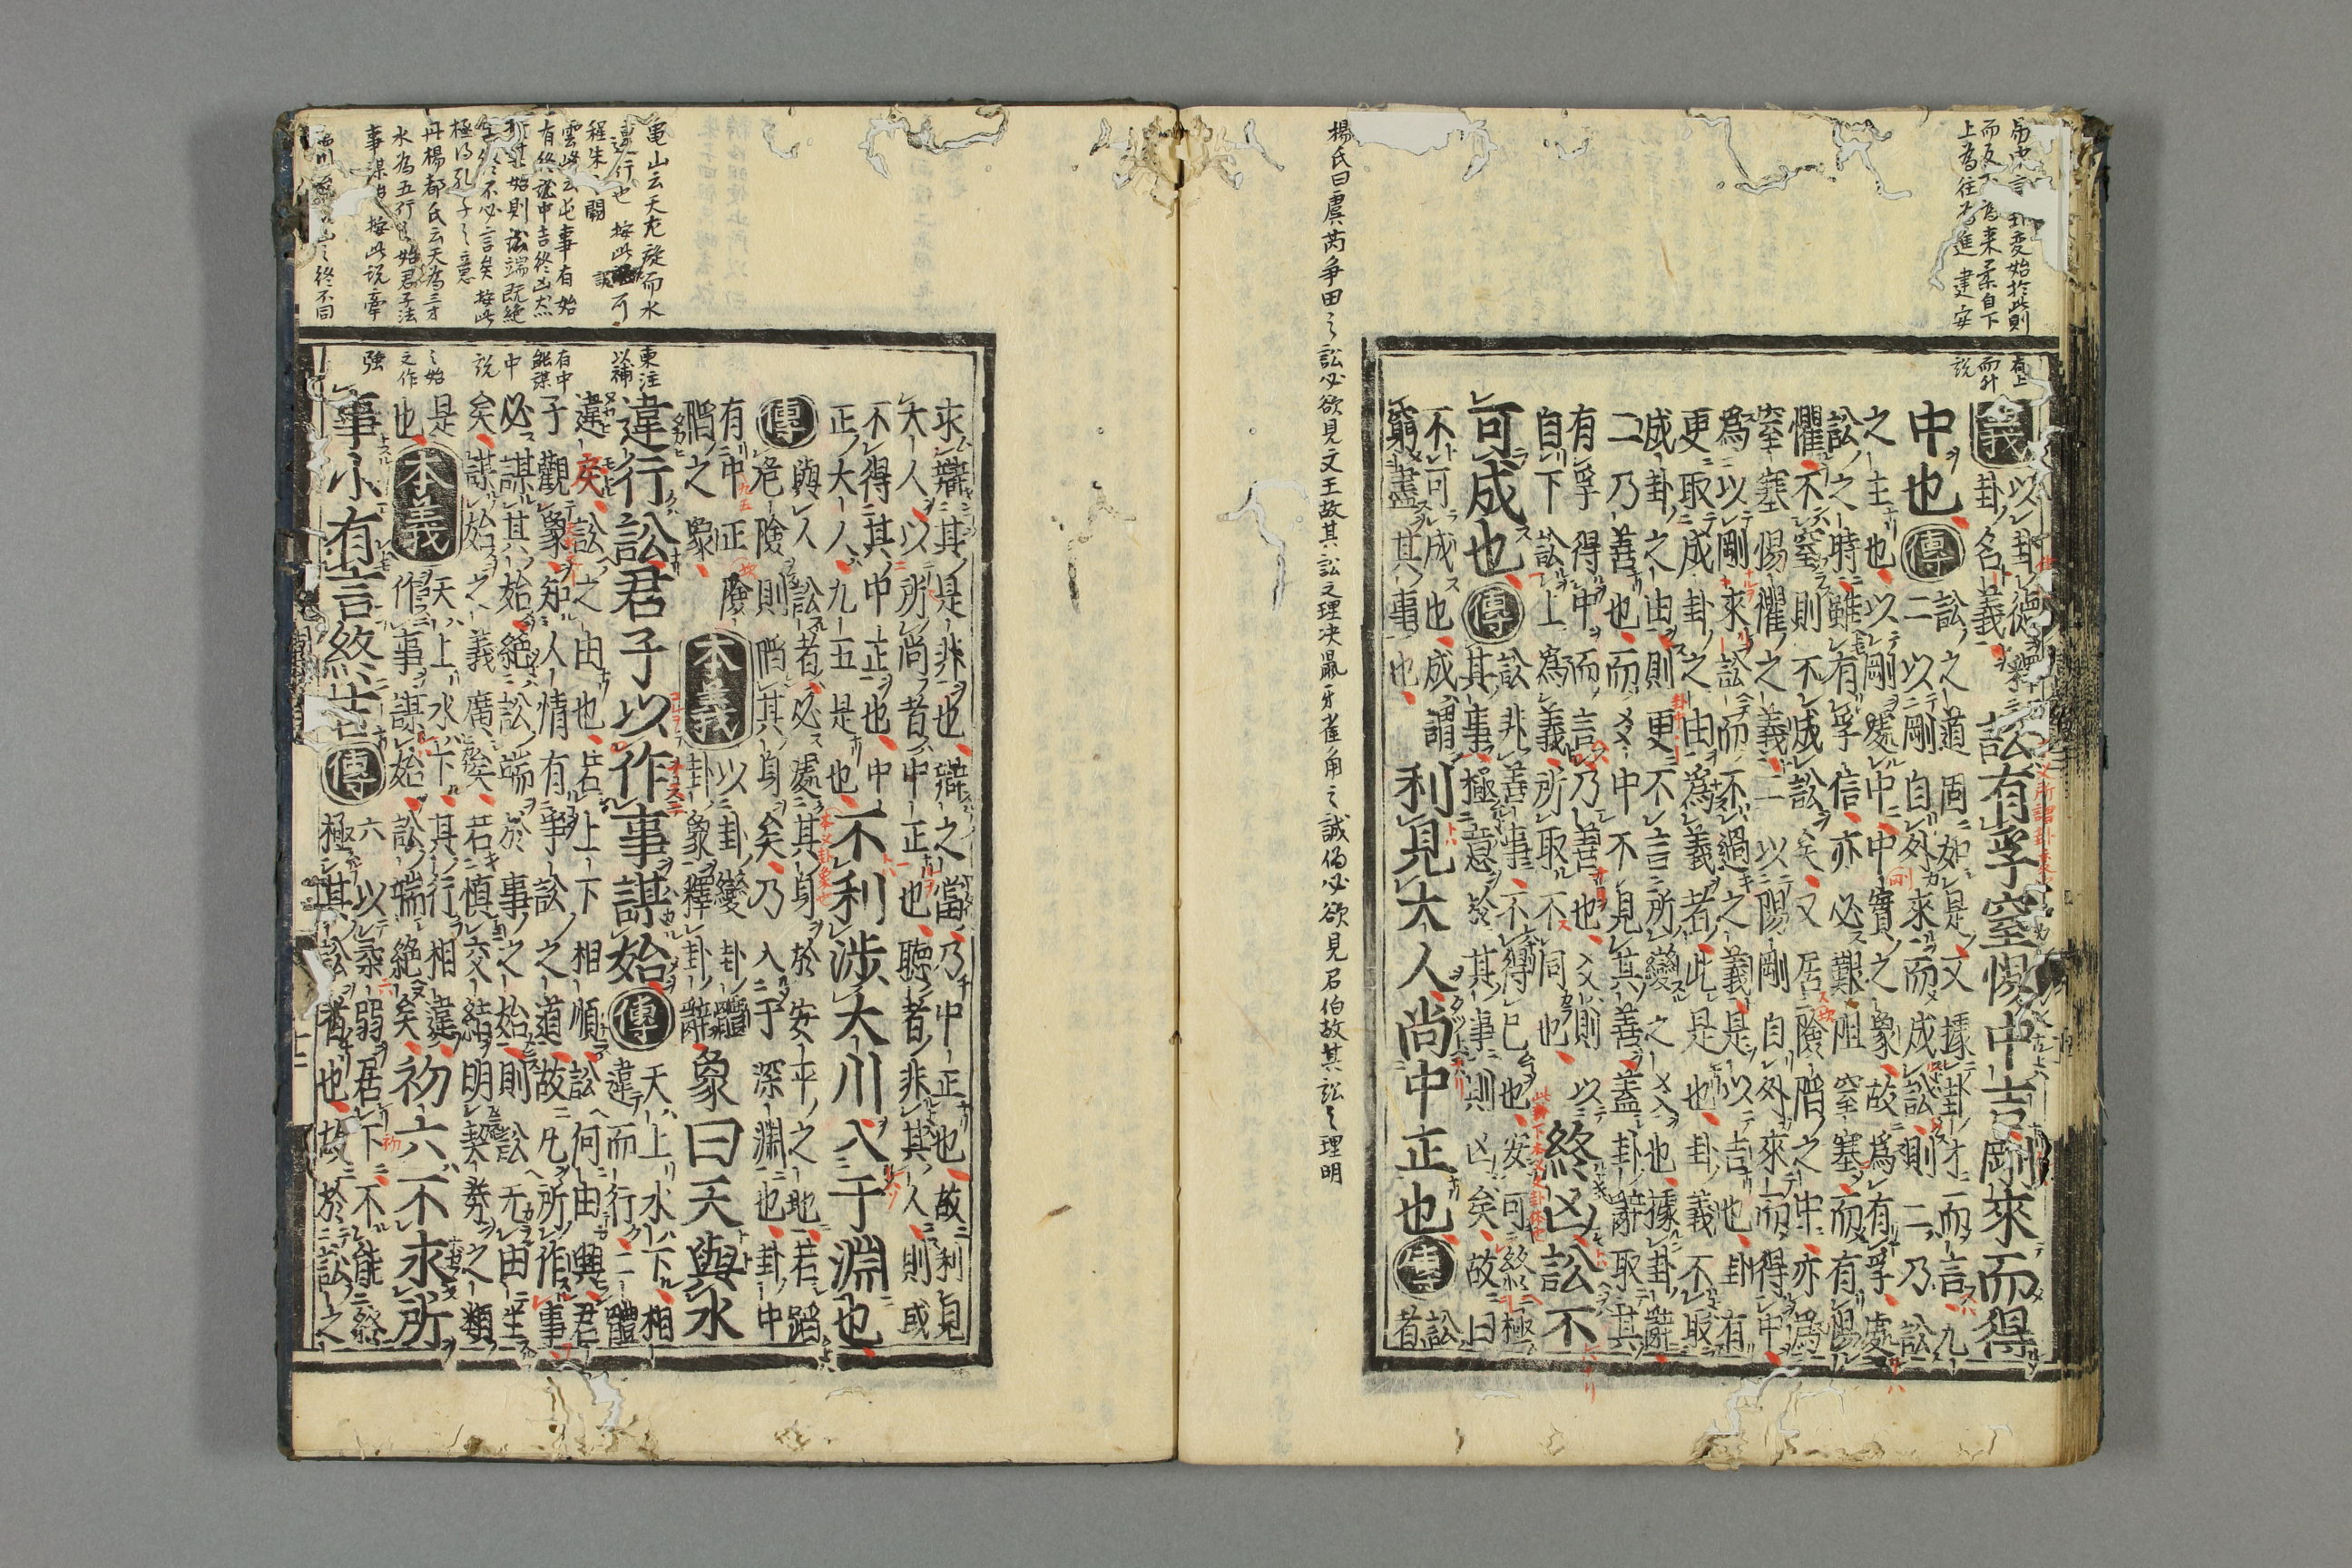 卦変始於此則有上
上為往為進 建安說
義 以卦德釋
卦名義
訟有孚窒惕中吉剛來而得
中也 傳 訟之道固如是又據卦才而言九
二以剛自外來而成訟則二乃訟
之主也以剛處中中實之象故爲有孚處
訟之時雖有孚信亦必艱阻窒塞而有惕
懼不窒則不成訟矣又居險陷之中亦爲
窒塞惕懼之義二以陽剛自外來而得中
爲以剛來訟而不過之義是以吉也卦有
更取成卦之由爲義者此是也卦義不取
成卦之由則更不言所變之爻也據卦辭
二乃善也而爻中不見其善蓋卦辭取其
有孚得中而言乃善也爻則以
自下訟上爲義所取不同也
終凶訟不
可成也 傳 訟非善事不得已也安可終極
其事極意於其事則凶矣故曰
不可成也成謂
窮盡其事也
利見大人尚中正也 傳 訟
者
楊氏曰虞芮爭田之訟必欲見文王故其訟之理决鼠牙雀角之誠偽必欲見召伯故其訟之理明
亀山云天左旋而水東注
違行也 按此說可以補
程朱之闕
雲峰云凡事有始有中
有終訟中吉終凶然能謀
於其始則訟端既絕中
与終不必言矣 按此說
極得孔子之意
丹楊都氏云天為三才之始
水為五行之始君子法之作
事謀始 按此説牽強
求辯其是非也辯之當乃中正也故利見
大人以所尚者中正也聽者非其人則或
不得其中正也中
正大人九五是也
不利涉大川入于淵也
傳 與人訟者必處其身於安平之地若蹈
危險則陷其身矣乃入于深淵也卦中
有中正險
陷之象
本義 以卦變卦體
卦象釋卦辭
象曰天與水
違行訟君子以作事謀始 傳 天上水下相
違而行二體
違戾訟之由也若上下相順訟何由興君
子觀象知人情有爭訟之道故凡所作事
必謀其始絕訟端於事之始則訟无由生
矣謀始之義廣矣若慎交結明契券之類
是
也
本義 天上水下其行相違
作事謀始訟端絕矣
初六不永所
事小有言終吉 傳 六以柔弱居下不能終
極其訟者也故於訟之